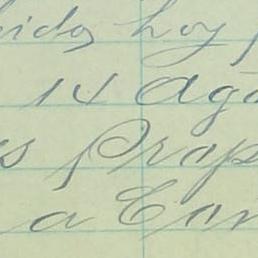 idos hoy
14 Ago
s Prop
a Con